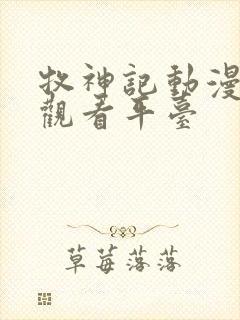 牧神記動漫
觀看平臺
草莓落落